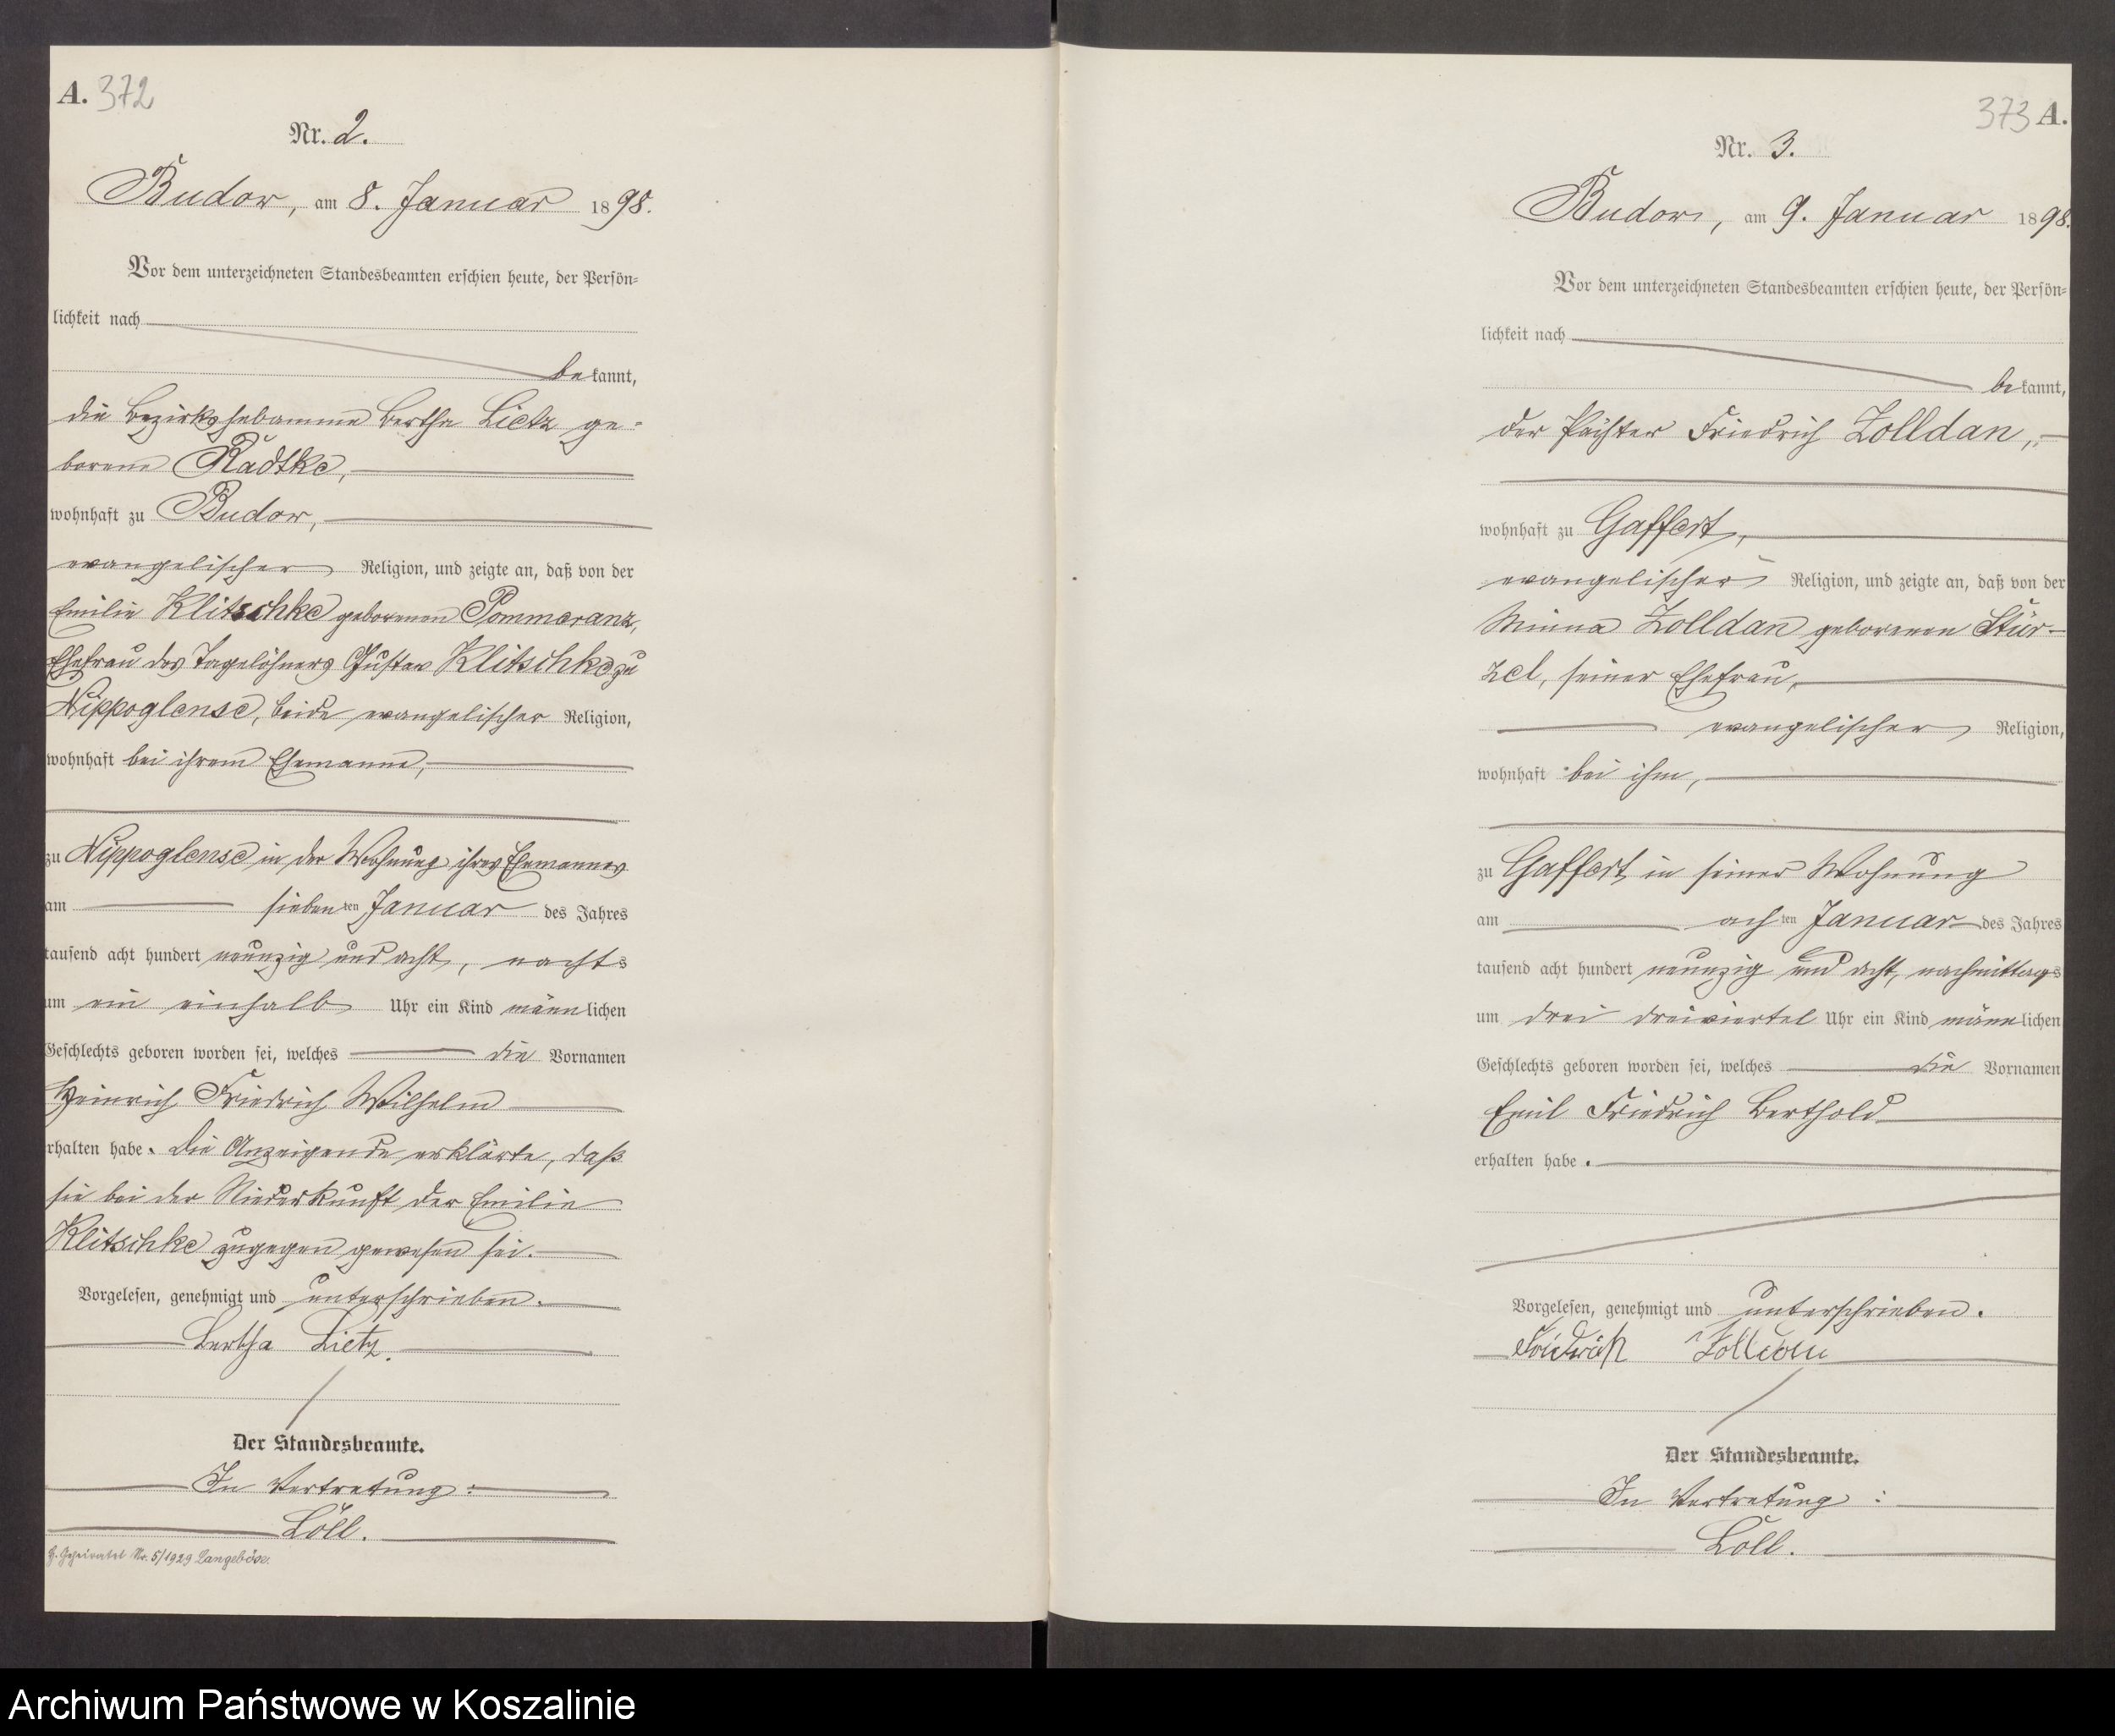 A. 372
Nr. 2.
Budow, am 8. Januar 1898.
Vor dem unterzeichneten Standesbeamten erschien heute, der Persön-
lichkeit nach
bekannt,
die Bezirkshebamme Bertha Lietz ge-
borene Radtke,
wohnhaft zu Budow,
evangelischer Religion, und zeigte an, daß von der
Emilie Klitschke geborenen Pommeranz,
Ehefrau des Tagelöhners Gustav Klitschke zu
Nippoglense, beide evangelischer Religion,
wohnhaft bei ihrem Ehemanne,
zu Nippoglense in der Wohnung ihres Ehemannes
am siebenten Januar des Jahres
tausend acht hundert neunzig und acht, nachts
um ein einhalb Uhr ein Kind männlichen
Geschlechts geboren worden sei, welches die Vornamen
Heinrich Friedrich Wilhelm
erhalten habe. Die Anzeigende erklärte, daß
sie bei der Niederkunft der Emilie
Klitschke zugegen gewesen sei.
Vorgelesen, genehmigt und unterschrieben.
Bertha Lietz.
Der Standesbeamte.
In Vertretung:
Löll.
H. Geheiratet Nr. 5/1929 Langeböse.
373 A.
Nr. 3.
Budow, am 9. Januar 1898.
Vor dem unterzeichneten Standesbeamten erschien heute, der Persön-
lichkeit nach
bekannt,
der Pächter Friedrich Zolldan,
wohnhaft zu Gaffert,
evangelischer Religion, und zeigte an, daß von der
Minna Zolldan geborenen Stür-
zel, seiner Ehefrau,
evangelischer Religion,
wohnhaft bei ihm,
zu Gaffert in seiner Wohnung
am achten Januar des Jahres
tausend acht hundert neunzig und acht, nachmittags
um drei dreiviertel Uhr ein Kind männlichen
Geschlechts geboren worden sei, welches die Vornamen
Emil Friedrich Berthold
erhalten habe.
Vorgelesen, genehmigt und unterschrieben.
Friedrich Zolldan
Der Standesbeamte.
In Vertretung:
Löll.
Archiwum Państwowe w Koszalinie